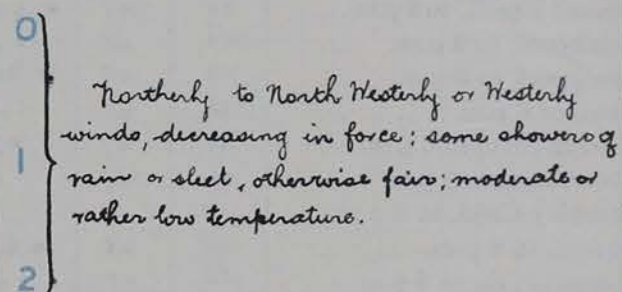 0
Northerly to North Westerly or Westerly
winds, decreasing in force; some showers of
1
rain or sleet, otherwise fair; moderate or
rather low temperature.
2